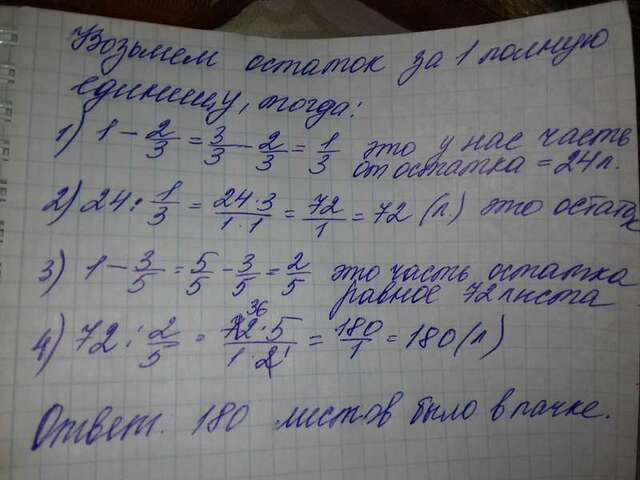 Возьмем остаток за 1 полную
единицу, тогда:
1) 1 - 2/3 = 3/3 - 2/3 = 1/3 это у нас часть
от остатка = 24 л.
2) 24 : 1/3 = 24·3/1·1 = 72/1 = 72 (л) это остаток
3) 1 - 3/5 = 5/5 - 3/5 = 2/5 это часть остатка
равное 72 листа
4) 72 : 2/5 = 72 36·5/1·2 1 = 180/1 = 180 (л)
Ответ. 180 листов было в пачке.